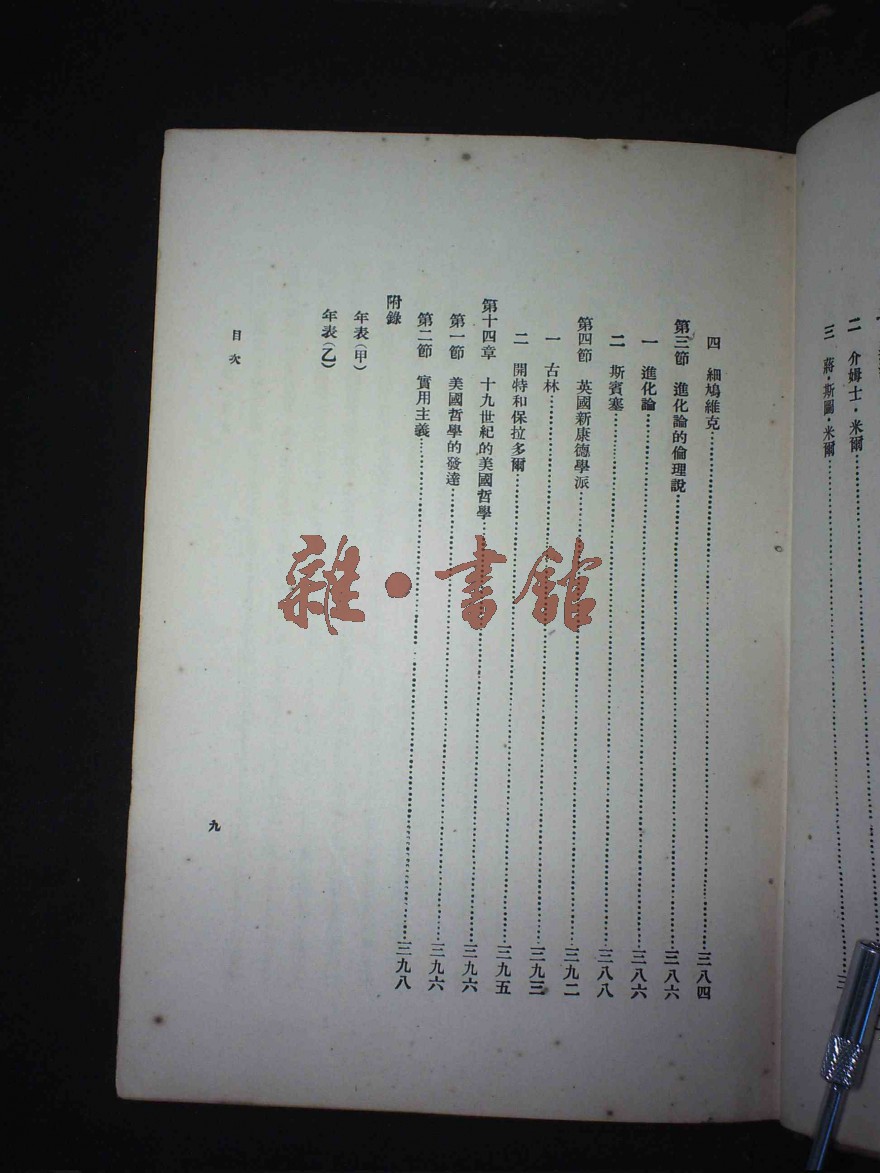 二 介姆士·米爾
三 蔣·斯圖·米爾
四 細鳩維克 三八四
第三節 進化論的倫理說 三八六
一 進化論 三八六
二 斯賓塞 三八八
第四節 英國新康德學派 三九二
一 古林 三九三
二 開特和保拉多爾 三九五
第十四章 十九世紀的美國哲學 三九六
第一節 美國哲學的發達 三九六
第二節 實用主義 三九八
附錄
年表(甲)
年表(乙)
目次
九
雜·書館